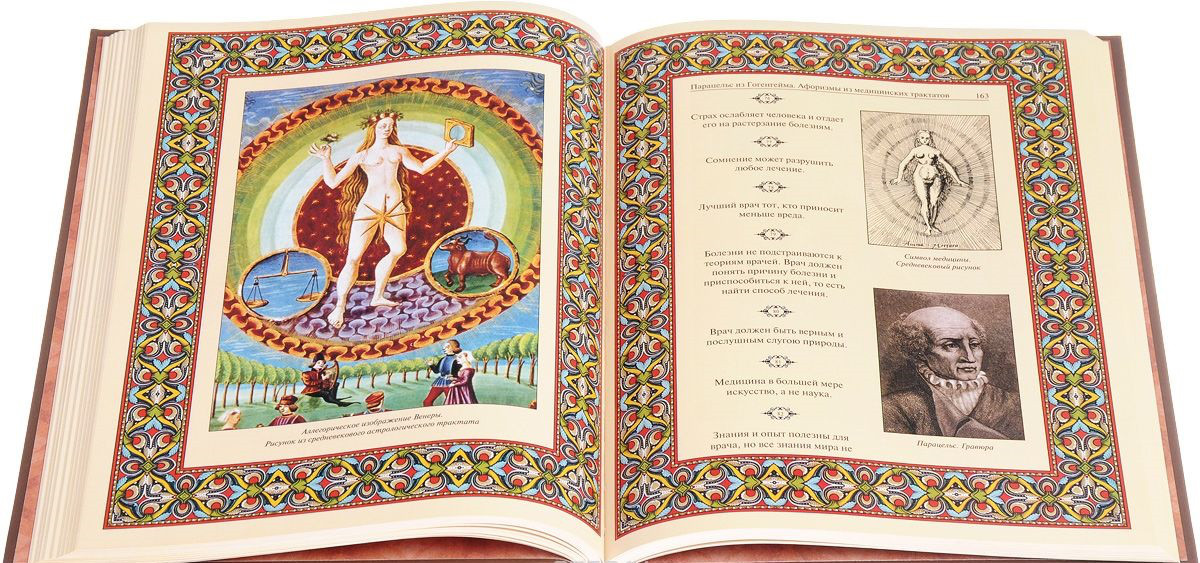 Аллегорическое изображение Венеры.
Рисунок из средневекового астрологического трактата
Парацельс из Гогенгейма. Афоризмы из медицинских трактатов 163
Страх ослабляет человека и отдает
его на растерзание болезням.
Сомнение может разрушить
любое лечение.
Лучший врач тот, кто приносит
меньше вреда.
79
Болезни не подстраиваются к
теориям врачей. Врач должен
понять причину болезни и
приспособиться к ней, то есть
найти способ лечения.
80
Врач должен быть верным и
послушным слугою природы.
81
Медицина в большей мере
искусство, а не наука.
82
Знания и опыт полезны для
врача, но все знания мира не
Символ медицины.
Средневековый рисунок
Парацельс. Гравюра